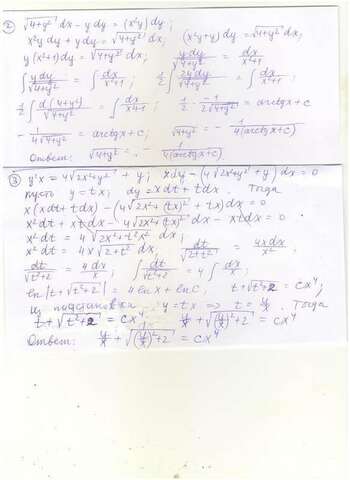 ② √(4+y²) dx - y dy = (x²y) dy;
x²y dy + y dy = √(4+y²) dx; (x²y+y) dy = √(4+y²) dx;
y(x²+1) dy = √(4+y²) dx; y dy/√(4+y²) = dx/(x²+1)
∫ y dy/√(4+y²) = ∫ dx/(x²+1); 1/2 ∫ 2y dy/√(4+y²) = ∫ dx/(x²+1);
1/2 ∫ d(4+y²)/√(4+y²) = ∫ dx/(x²+1); 1/2 · -1/(2√(4+y²)) = arctgx + c
- 1/(4√(4+y²)) = arctgx + c; √(4+y²) = - 1/(4(arctgx+c))
Ответ: √(4+y²) = - 1/(4(arctgx+c))
③ y'x = 4√(2x²+y²) + y; xdy - (4√(2x²+y²) + y) dx = 0
пусть y = tx; dy = xdt + tdx. Тогда
x(xdt + tdx) - (4√(2x²+(tx)²) + tx) dx = 0
x²dt + xtdx - 4√(2x²+(tx)²) dx - xtdx = 0
x²dt = 4√(2x²+t²x²) dx;
x²dt = 4x√(2+t²) dx; dt/√(2+t²) = 4xdx/x²
dt/√(t²+2) = 4dx/x; ∫ dt/√(t²+2) = 4∫ dx/x;
ln|t+√(t²+2)| = 4lnx + lnC; t+√(t²+2) = cx⁴;
Из подстановки y = tx => t = y/x. Тогда
t+√(t²+2) = cx⁴; y/x + √((y/x)²+2) = cx⁴
Ответ: y/x + √((y/x)²+2) = cx⁴